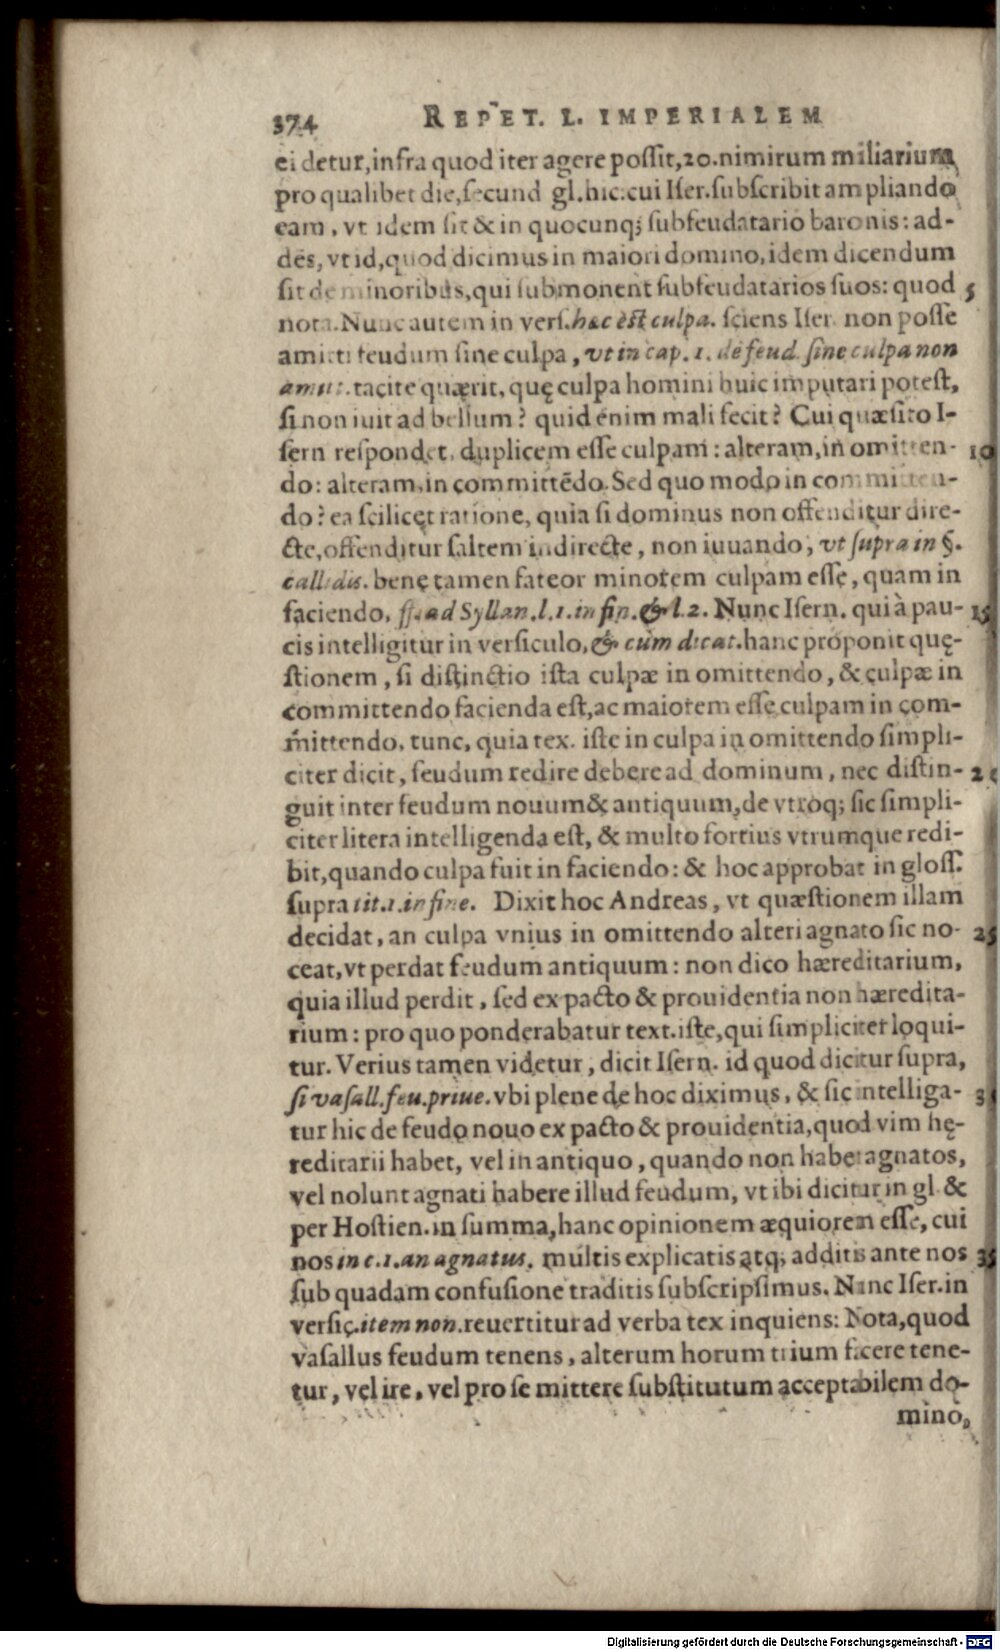 374 REPET. L. IMPERIALEM
ei detur, infra quod iter agere poſſit, 20. nimirum miliarium
pro qualibet die, ſecund gl. hic. cui Iſer. ſubſcribit ampliando
eam, vt idem ſit & in quocunq; ſubfeudatario baronis: ad-
des, vt id, quod dicimus in maiori domino, idem dicendum
ſit de minoribus, qui ſubmonent ſubfeudatarios ſuos: quod 5
nota. Nunc autem in verſ. hæc est culpa. ſciens Iſer. non poſſe
amitti feudum ſine culpa, vt in cap. 1. de feud. ſine culpa non
amit. tacite quærit, quę culpa homini huic imputari poteſt,
ſi non iuit ad bellum? quid enim mali fecit? Cui quæſito I-
ſern reſpondet, duplicem eſſe culpam: alteram, in omitten- 10
do: alteram, in committēdo. Sed quo modo in committen-
do? ea ſcilicet ratione, quia ſi dominus non offenditur dire-
cte, offenditur ſaltem indirecte, non iuuando, vt ſupra in §.
callidis. bene tamen fateor minorem culpam eſſe, quam in
faciendo, ff. ad Syllan. l. 1. in fin. & l. 2. Nunc Iſern. qui à pau- 15
cis intelligitur in verſiculo, & cùm dicat. hanc proponit quę-
ſtionem, ſi diſtinctio iſta culpæ in omittendo, & culpæ in
committendo facienda eſt, ac maiorem eſſe culpam in com-
mittendo, tunc, quia tex. iſte in culpa in omittendo ſimpli-
citer dicit, feudum redire debere ad dominum, nec diſtin- 2
guit inter feudum nouum & antiquum, de vtroq; ſic ſimpli-
citer litera intelligenda eſt, & multo fortius vtrumque redi-
bit, quando culpa fuit in faciendo: & hoc approbat in gloſſ.
ſupra tit. 1. in fine. Dixit hoc Andreas, vt quæſtionem illam
decidat, an culpa vnius in omittendo alteri agnato ſic no- 25
ceat, vt perdat feudum antiquum: non dico hæreditarium,
quia illud perdit, ſed ex pacto & prouidentia non hæredita-
rium: pro quo ponderabatur text. iſte, qui ſimpliciter loqui-
tur. Verius tamen videtur, dicit Iſern. id quod dicitur ſupra,
ſi vaſall. feu. priue. vbi plene de hoc diximus, & ſic intelliga- 3
tur hic de feudo nouo ex pacto & prouidentia, quod vim hę-
reditarii habet, vel in antiquo, quando non habet agnatos,
vel nolunt agnati habere illud feudum, vt ibi dicitur in gl &
per Hoſtien. in ſumma, hanc opinionem æquiorem eſſe, cui
nos in c. 1. an agnatus. multis explicatis atq; additis ante nos 35
ſub quadam confuſione traditis ſubſcripſimus. Nunc Iſer. in
verſic. item non. reuertitur ad verba tex inquiens: Nota, quod
vaſallus feudum tenens, alterum horum trium facere tene-
tur, vel ire, vel pro ſe mittere ſubſtitutum acceptabilem do-
mino,
Digitalisierung gefördert durch die Deutsche Forschungsgemeinschaft - DFG